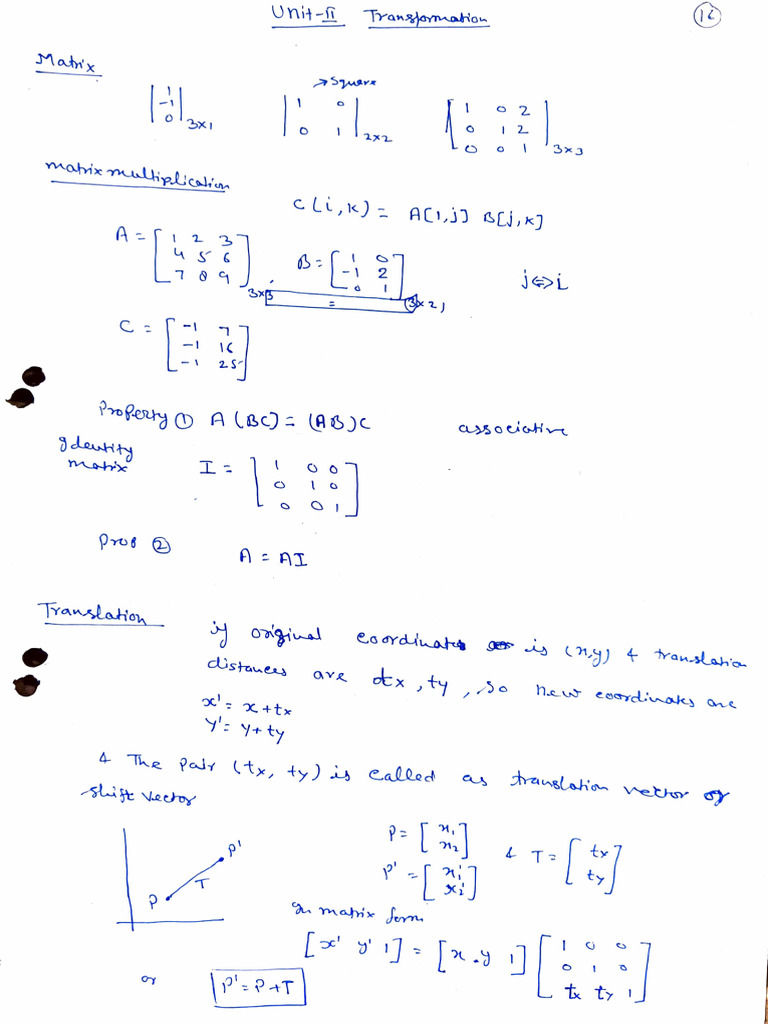 Unit-II Transformation
16
Matrix
→ Square
| 1 |
| -1 |
| 0 | 3×1
| 1 0 |
| 0 1 | 2×2
[ 1 0 2 ]
[ 0 1 2 ]
[ 0 0 1 ] 3×3
matrix multiplication
C(i,k) = A[i,j] B[j,k]
A = [ 1 2 3 ]
[ 4 5 6 ]
[ 7 8 9 ] 3×3
B = [ 1 0 ]
[ -1 2 ]
[ 0 1 ] 3×2
=
j⇔i
C = [ -1 7 ]
[ -1 16 ]
[ -1 25 ]
Property ① A(BC) = (AB)C associative
Identity
matrix
I = [ 1 0 0 ]
[ 0 1 0 ]
[ 0 0 1 ]
Prop ② A = AI
Translation
if original coordinates is (x,y) & translation
distances are tx, ty, so new coordinates are
x' = x + tx
y' = y + ty
& The pair (tx, ty) is called as translation vector or
shift vector
P = [ x1 ]
[ x2 ]
& T = [ tx ]
[ ty ]
P' = [ x1' ]
[ x2' ]
P T P'
In matrix form
[x' y' 1] = [x y 1] [ 1 0 0 ]
[ 0 1 0 ]
[ tx ty 1 ]
or P' = P + T